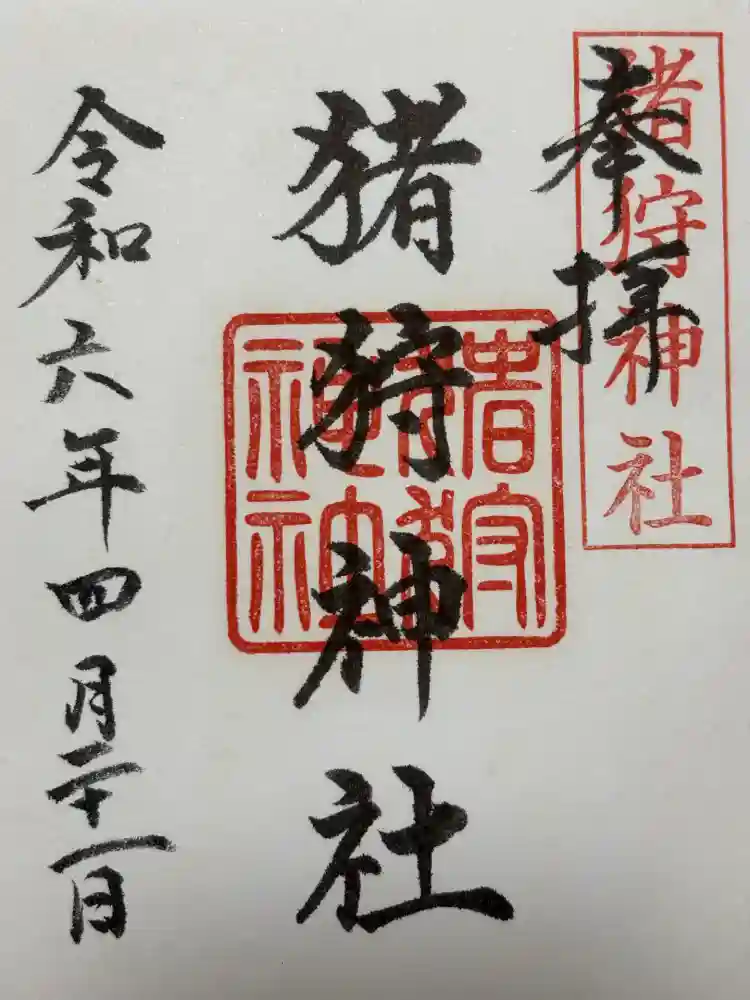 奉拝
猪狩神社
猪狩神社
猪狩神社
令和六年四月二十一日